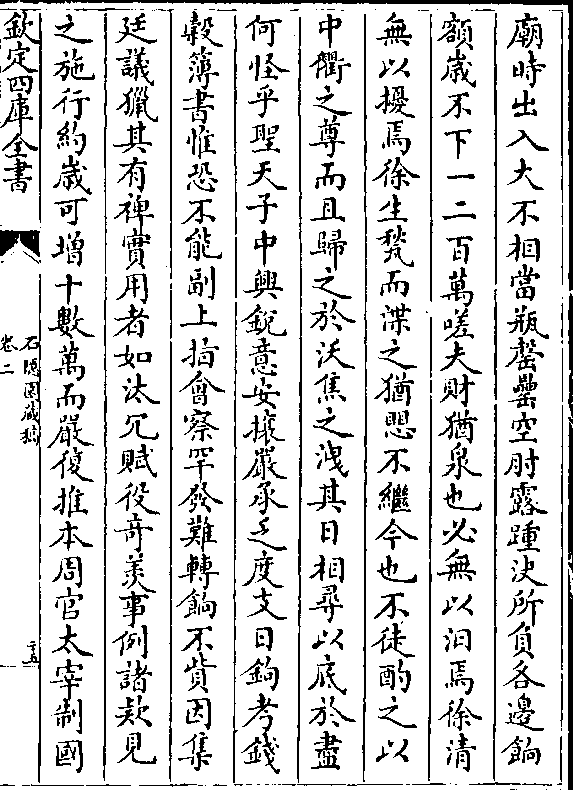 廟時出入大不相當瓶罄罍空肘露踵決所負各邊餉
額歲不下一二百萬嗟夫財猶泉也必無以汩焉徐清
無以擾焉徐生甃而渫之猶思不繼今也不徒酌之以
中衢之尊而且歸之於沃焦之洩其日相尋以底於盡
何怪乎聖天子中興銳意安攘嚴承乏度支日鉤考錢
穀簿書惟恐不能副上指會察罕發難轉餉不貲因集
廷議獵其有裨實用者如汰冗賦役奇羨事例諸款見
之施行約歲可增十數萬而嚴復推本周官太宰制國
欽定四庫全書
石隱園藏稿
卷二
二十五